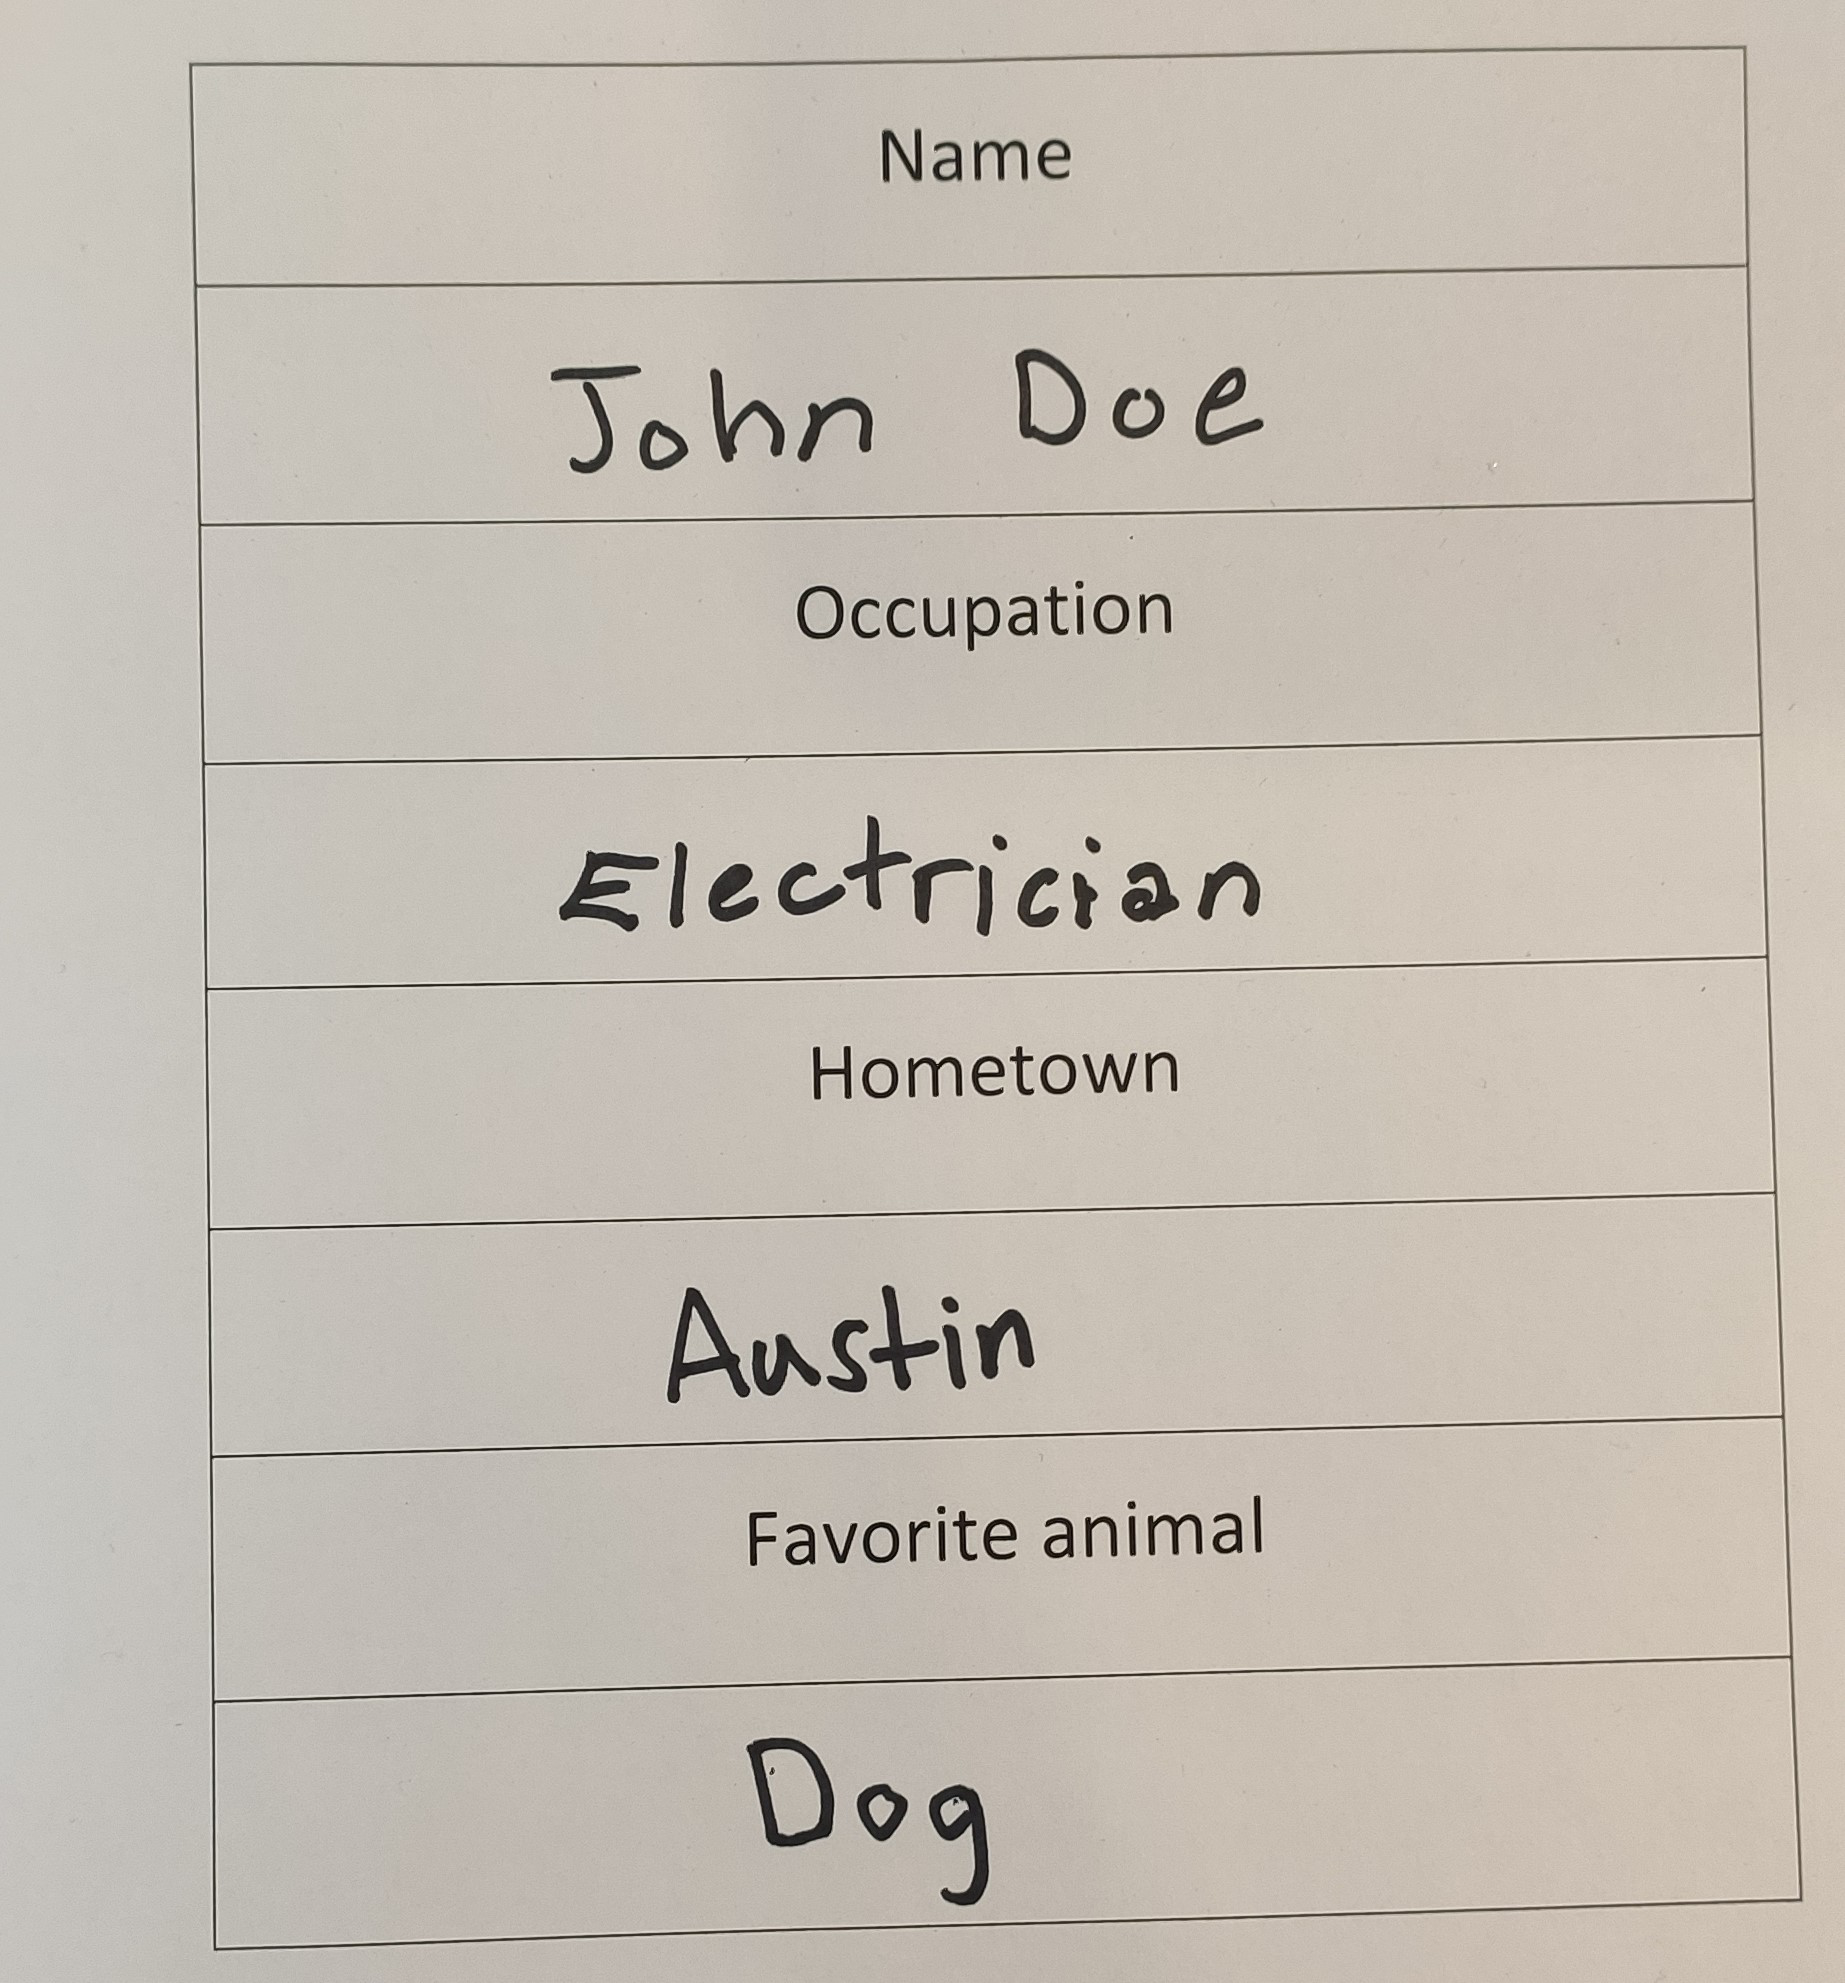 Name
John Doe
Occupation
Electrician
Hometown
Austin
Favorite animal
Dog